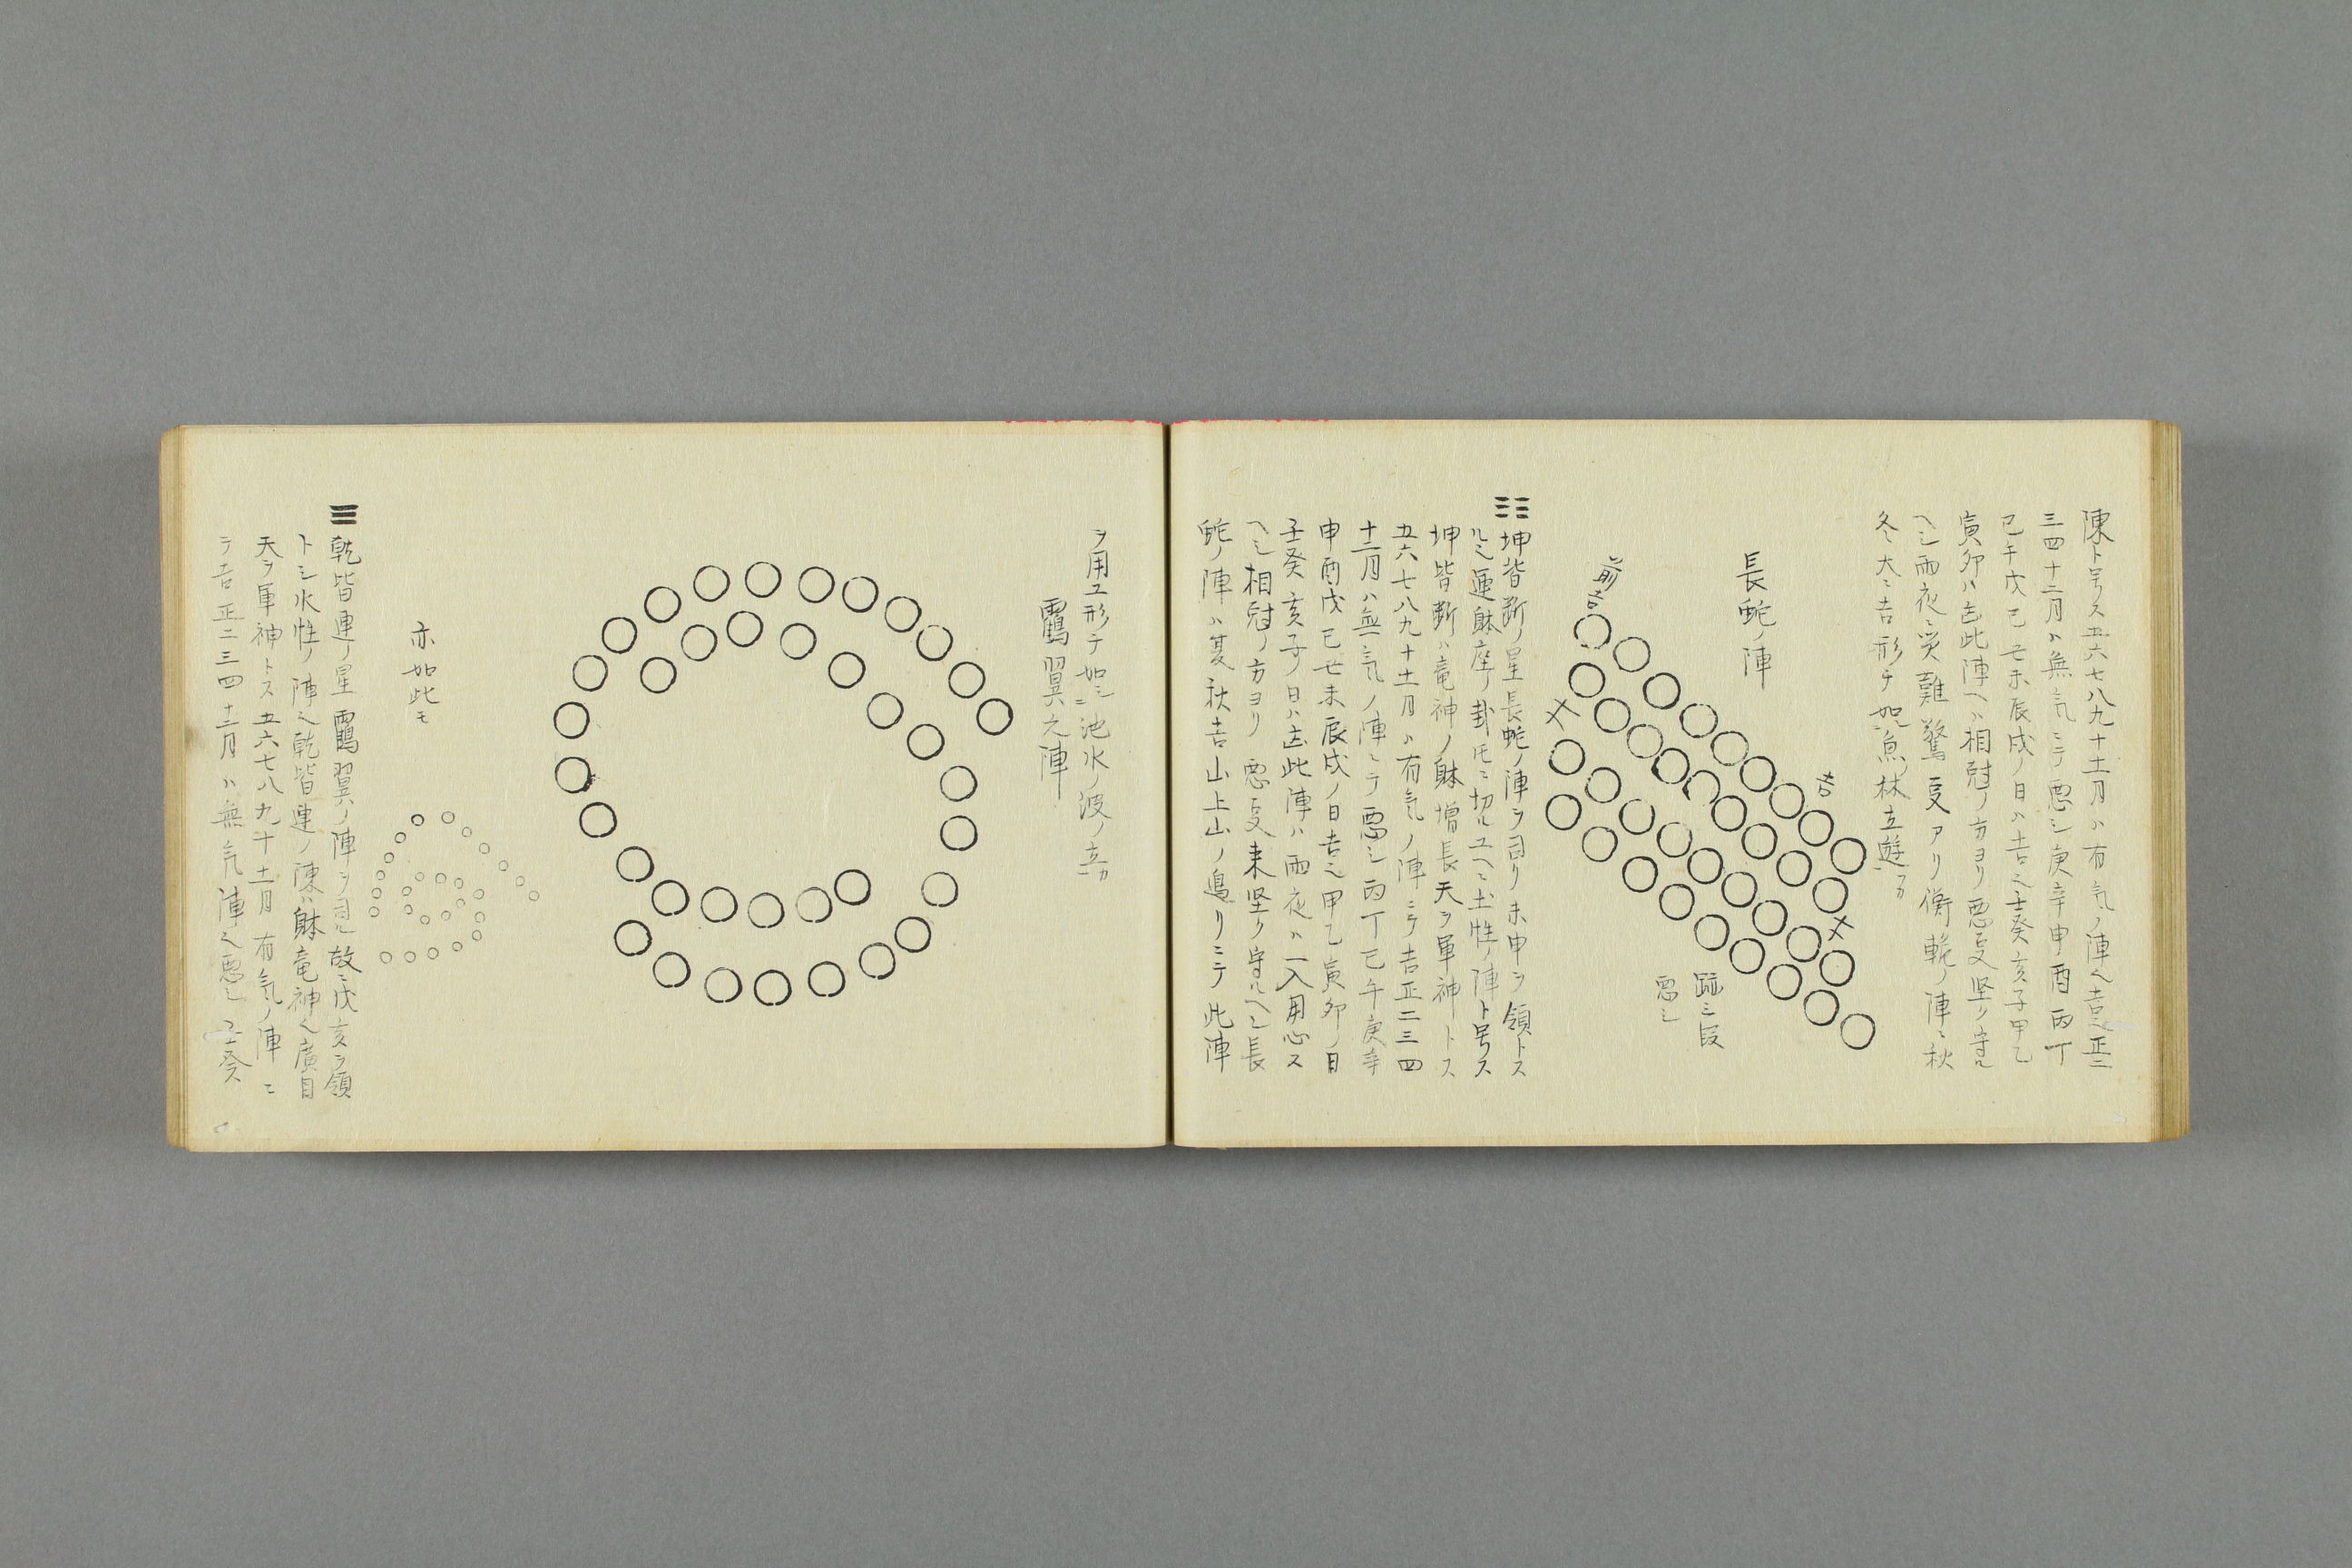 陳ト号ス五六七八九十十一月ハ有気ノ陣也吉也正二
三四十二月ハ無気ニテ悪シ庚辛申酉丙丁
巳午戊己丑未辰戌ノ日ハ吉也壬癸亥子甲乙
寅卯ハ凶此陣ヘハ相尅ノ方ヨリ悪㕝堅ク守ル
ヘシ雨夜ニ災難驚㕝アリ衡軛ノ陣ニ秋
冬大ニ吉形チ如魚林立遊
長蛇ノ陣
前吉
吉
跡ニ
悪シ
☷坤皆断ノ星長蛇ノ陣ヲ司リ未申ヲ領トス
坤皆断ハ竜神ノ躰増長天ヲ軍神トス
五六七八九十十一月ハ有気ノ陣ニテ吉正二三四
十二月ハ無気ノ陣ニテ悪シ丙丁巳午庚辛
申酉戊己丑未辰戌ノ日吉也甲乙寅卯ノ日
壬癸亥子ノ日ハ凶此陣ハ雨夜ハ一入用心ス
ヘシ相尅ノ方ヨリ悪㕝来堅ク守ルヘシ長
蛇ノ陣ハ夏秋吉山上山ノ嶋リニテ此陣
ヲ用ユ形チ如シ池水ノ波ノ立カ
靍翼之陣
亦如此モ
☰乾皆連ノ星靍翼ノ陣ヲ司ル故ニ戌亥ヲ領
トシ水性ノ陣也乾皆連ノ陳ハ躰竜神也廣目
天ヲ軍神トス五六七八九十十一月有気ノ陣ニ
テ吉正二三四十二月ハ無気陣也悪シ壬癸